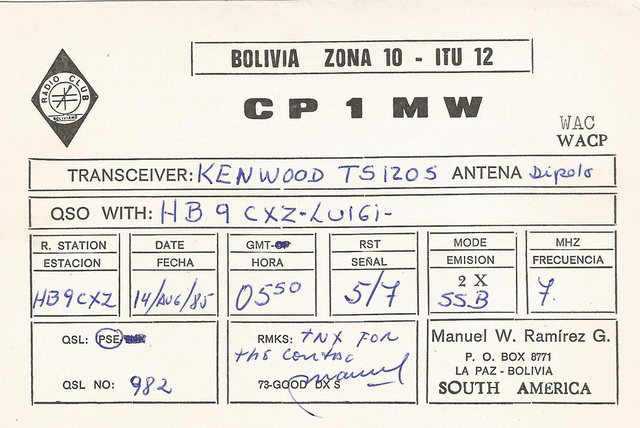 BOLIVIA ZONA 10 - ITU 12
RADIO CLUB
BOLIVIANO
CP1MW
WAC
WACP
TRANSCEIVER: KENWOOD TS120S ANTENA Dipolo
QSO WITH: HB9CXZ-LUIGI-
R. STATION DATE GMT- RST MODE MHZ
ESTACION FECHA HORA SEÑAL EMISION FRECUENCIA
HB9CXZ 14/AUG/85 0550 5/7 2 X SSB 7.
QSL: PSE
QSL NO: 982
RMKS: TNX FOR
THE CONTAC
73-GOOD DX S
Manuel
Manuel W. Ramírez G.
P. O. BOX 8771
LA PAZ - BOLIVIA
SOUTH AMERICA